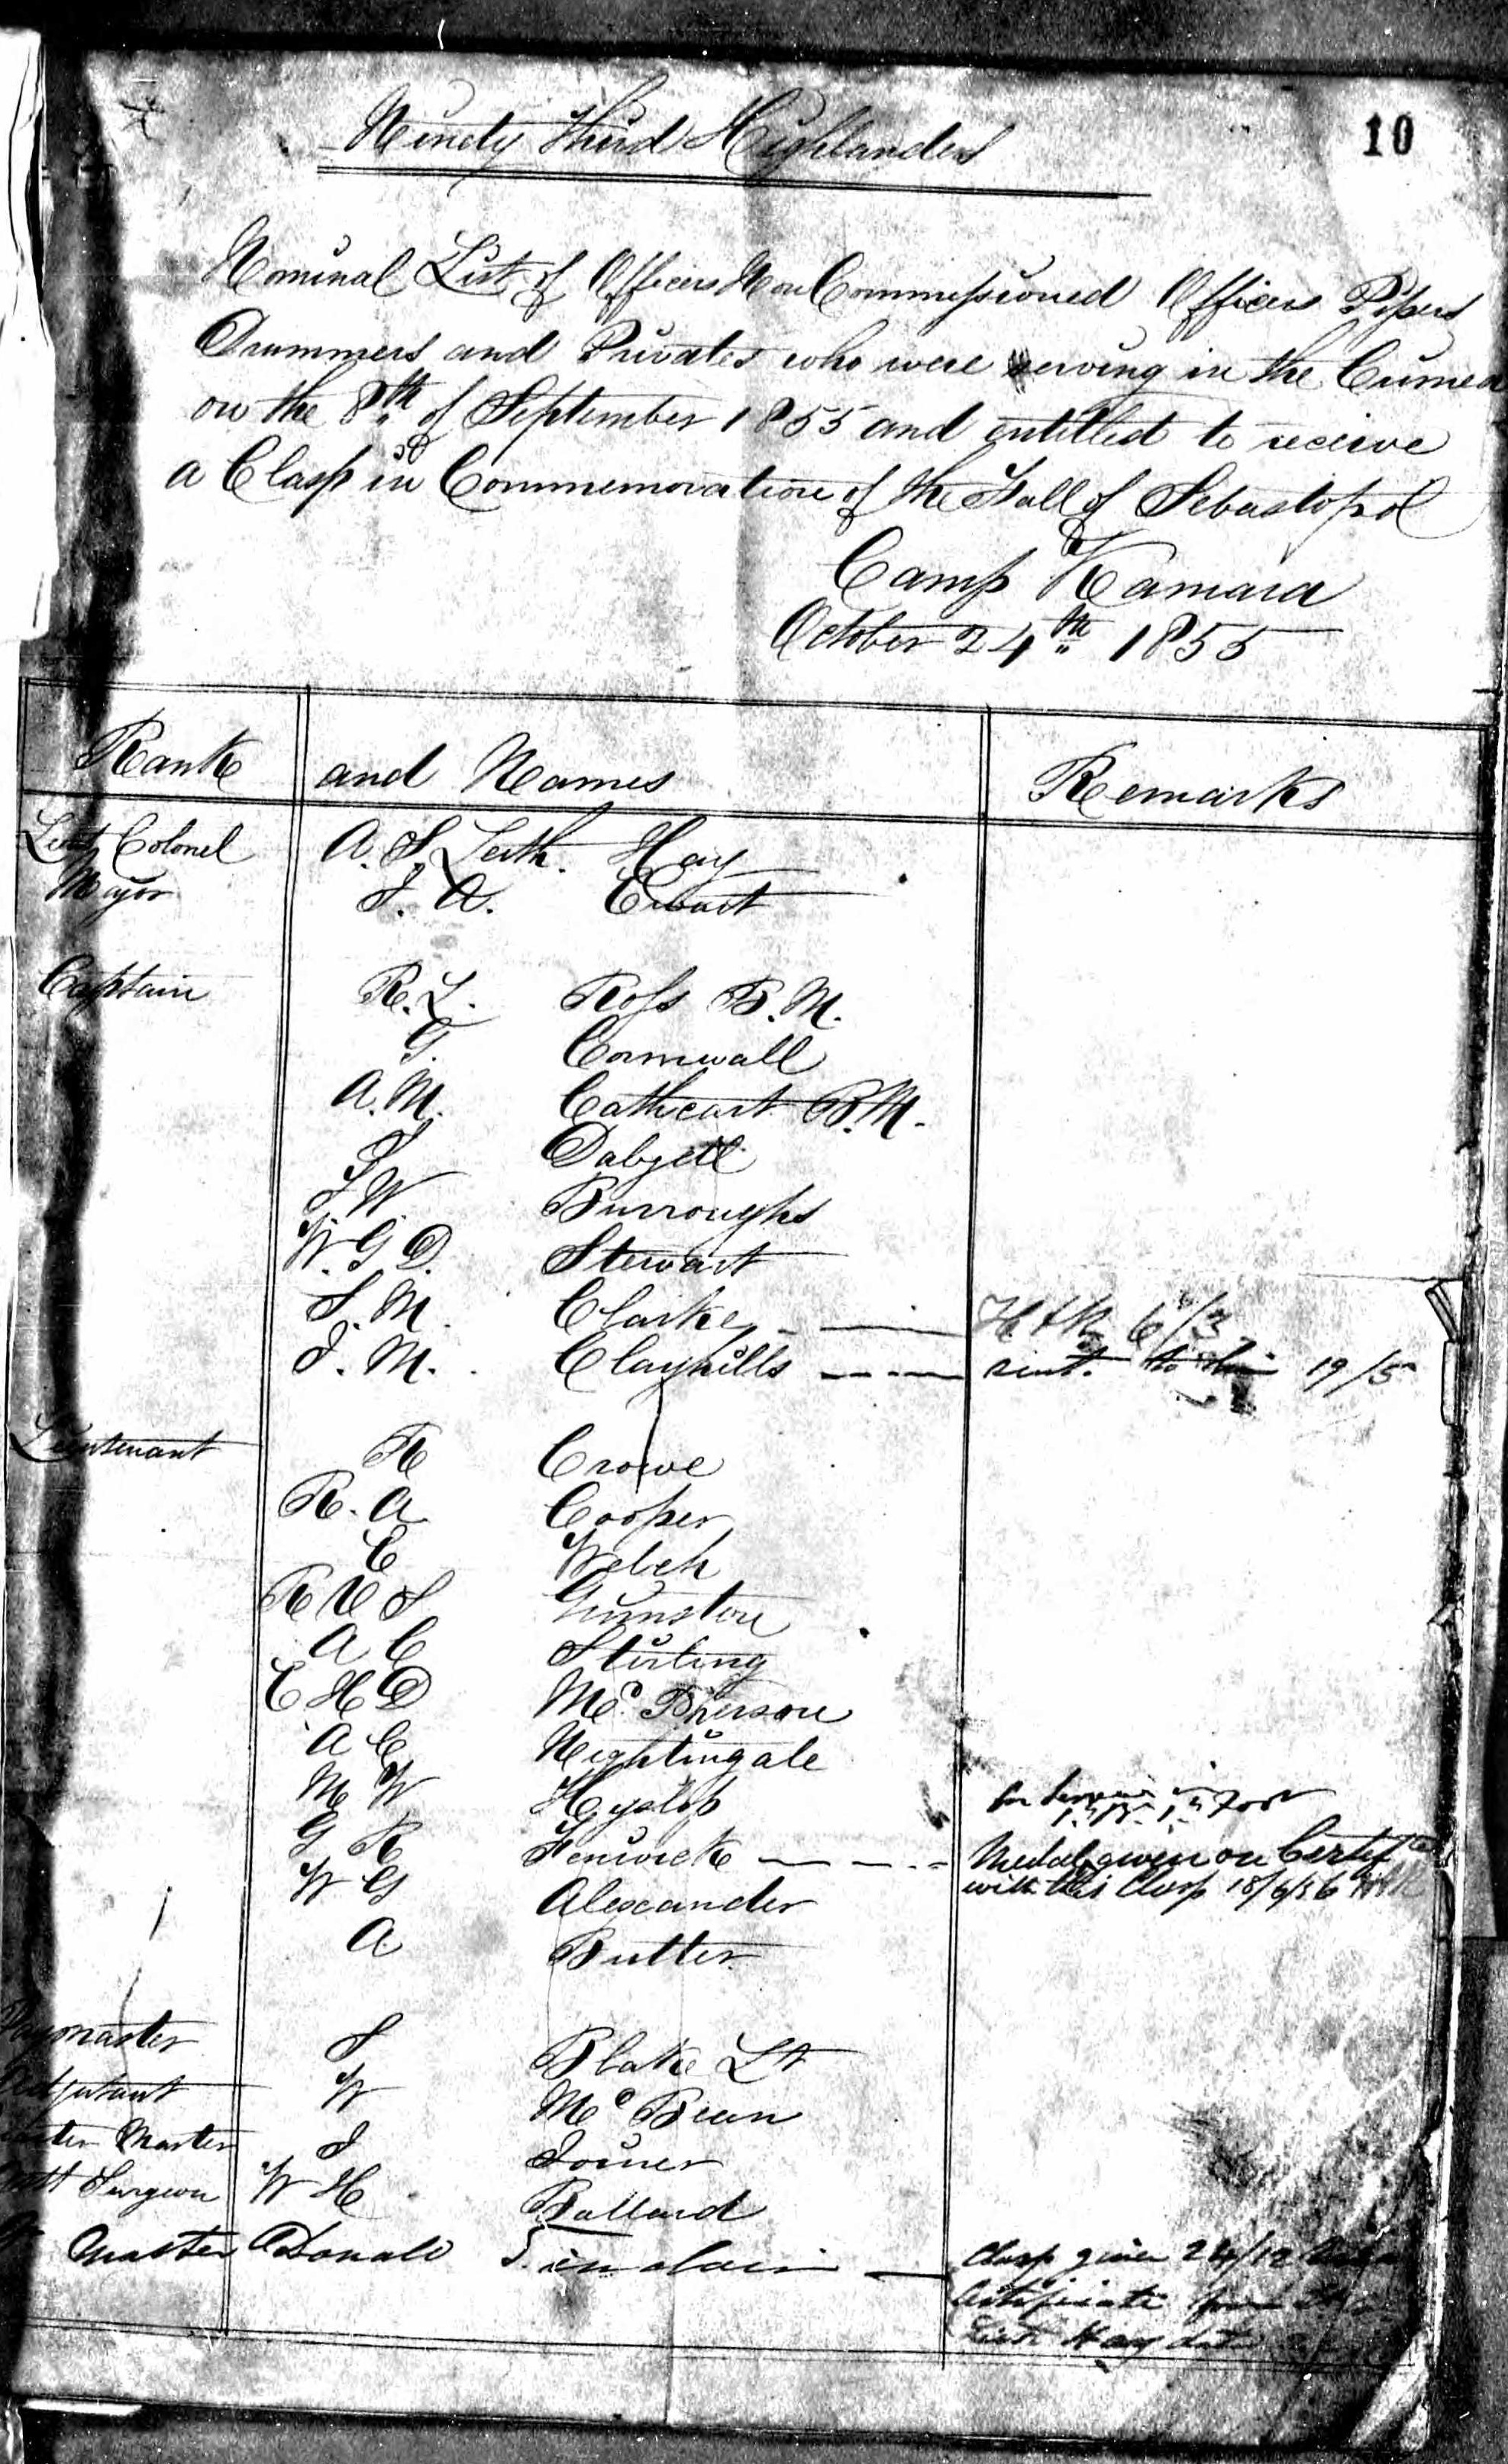 10
Ninety Third Highlanders
Nominal List of Officers Non Commissioned Officers Pipers
Drummers and Privates who were serving in the Crimea
on the 8th of September 1855 and entitled to receive
a Clasp in Commemoration of the Fall of Sebastopol
Camp Kamara
October 24th 1855
Rank and Names Remarks
Lieut Colonel A. S. Leith Hay
Major J. A. Ewart
Captain R. L. Ross B. M.
G. Cornwall
A. M. Cathcart B. M.
Dalzell
F W Burroughs
W. G. D. Stewart
S. M. Clarke 6/3
J. M. Clayhills sent to him 19/5
Lieutenant R Crowe
R. A Cooper
E Welch
R V S Grimston
A C Stirling
E H D McPherson
A C Nightingale
M W Hyslop
G R Fenwick Medal given on Certif
W G Alexander with this Clasp 18/6/56
A Butter
Paymaster J Blake Lt
Adjutant W McBean
Quarter Master J Joiner
Asst Surgeon W H Pollard
Master Donald Sinclair Clasp given 24/12
Certificate from
Leith Hay